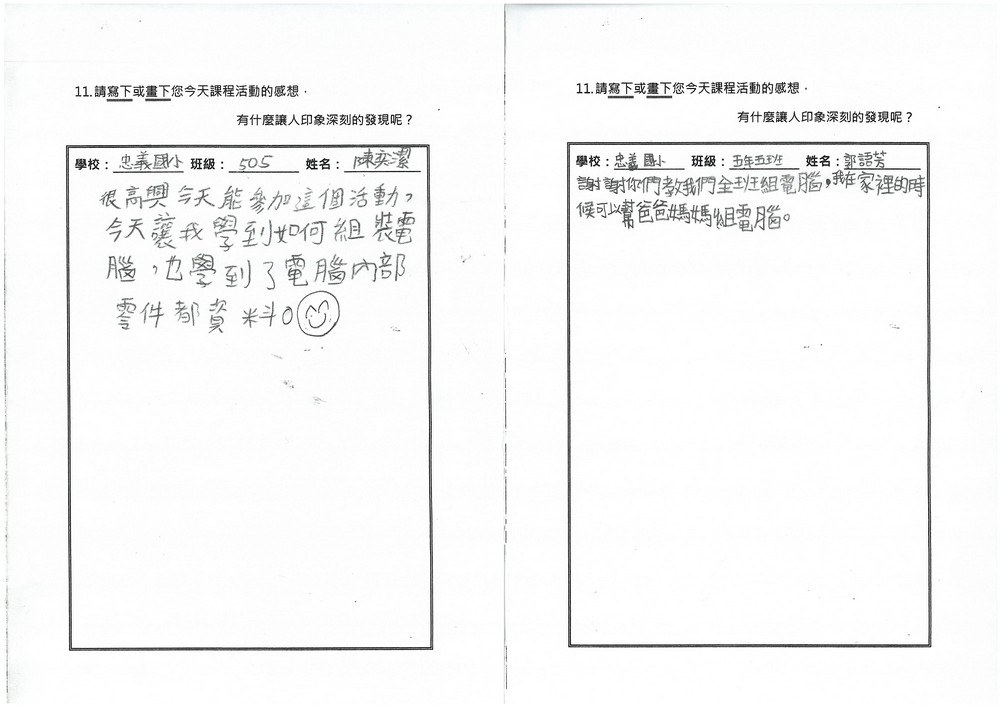 11.請寫下或畫下您今天課程活動的感想，
有什麼讓人印象深刻的發現呢？
學校：忠義國小 班級：505 姓名：陳奕潔
很高興今天能參加這個活動，
今天讓我學到如何組裝電
腦，也學到了電腦內部
零件都資料。
11.請寫下或畫下您今天課程活動的感想，
有什麼讓人印象深刻的發現呢？
學校：忠義國小 班級：五年五班 姓名：郭語芳
謝謝你們教我們全班組電腦，我在家裡的時
候可以幫爸爸媽媽組電腦。